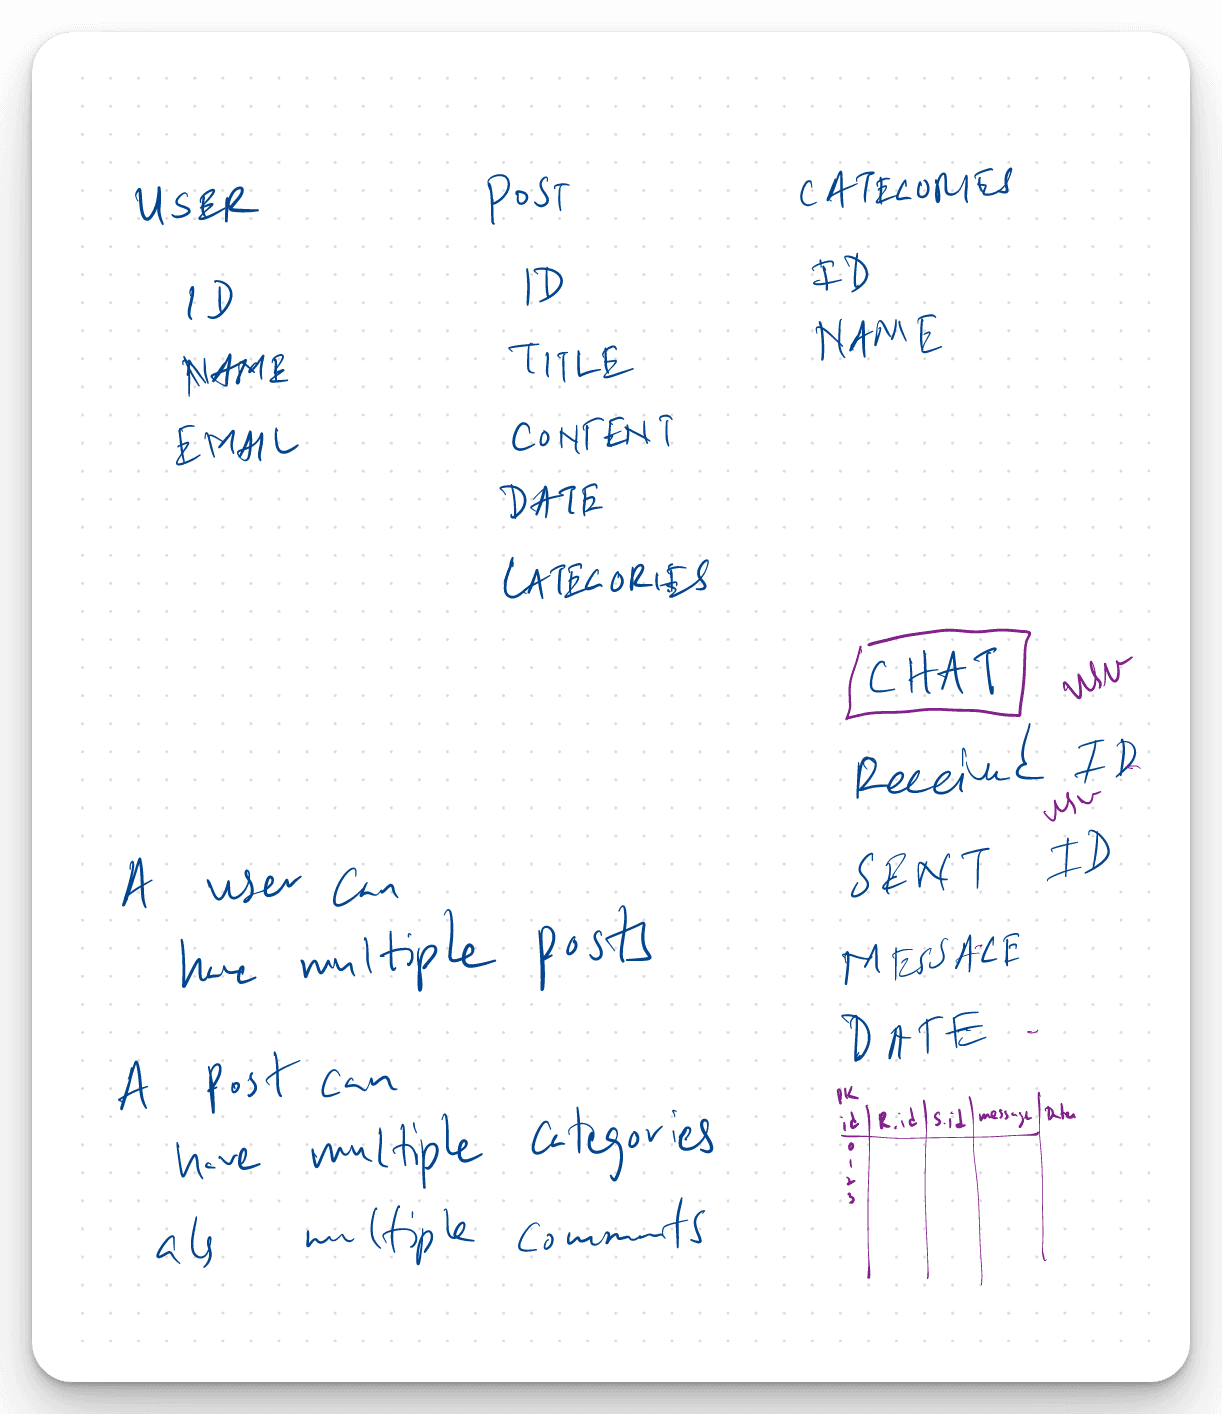 USER
ID
NAME
EMAIL
POST
ID
TITLE
CONTENT
DATE
CATEGORIES
CATEGORIES
ID
NAME
CHAT
Received ID
SENT ID
MESSAGE
DATE -
PK
id R.id S.id message Date
0
1
2
3
A user can
have multiple posts
A post can
have multiple categories
als multiple comments